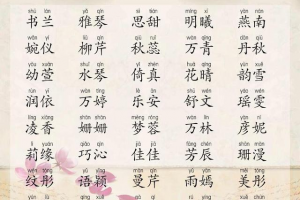 shū lán yǎ qín sī tián míng xī yàn nán
书兰 雅琴 思甜 明曦 燕南
wǎn yí liǔ qín qiū ruǐ wàn qīng dān qiū
婉仪 柳芹 秋蕊 万青 丹秋
yòu xuān shuǐ qín yǐ zhēn huā qíng yùn xuě
幼萱 水琴 倚真 花晴 韵雪
rùn yī wàn tíng lè ān shū wén yáo wén
润依 万婷 乐安 舒文 瑶雯
líng xiāng shān shān mèng róng wàn lín yàn nī
凌香 姗姗 梦蓉 万林 彦妮
lì tí qiǎo qìn jiā jiā fāng chén shān màn
莉缇 巧沁 佳佳 芳辰 珊漫
wén tóng yǔ yǐng màn qín yǔ yān měi tóng
纹彤 语颖 曼芹 雨嫣 美彤